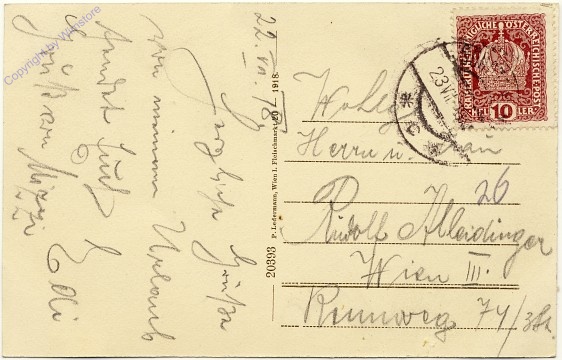 22. VII. 18
Herzliche Grüße
von meinem Urlaub
sendet Euch Edi
Grüße an Mizzi
20393 P. Ledermann, Wien I. Fleischmarkt 20 – 1918
KAISERLICHE KÖNIGLICHE ÖSTERREICHISCHE POST
10
HELLER
23 VII
Wohlg
Herrn u. Frau
26
Rudolf Alleidinger
Wien III.
Rennweg 74/3
Copyright by Wienstore